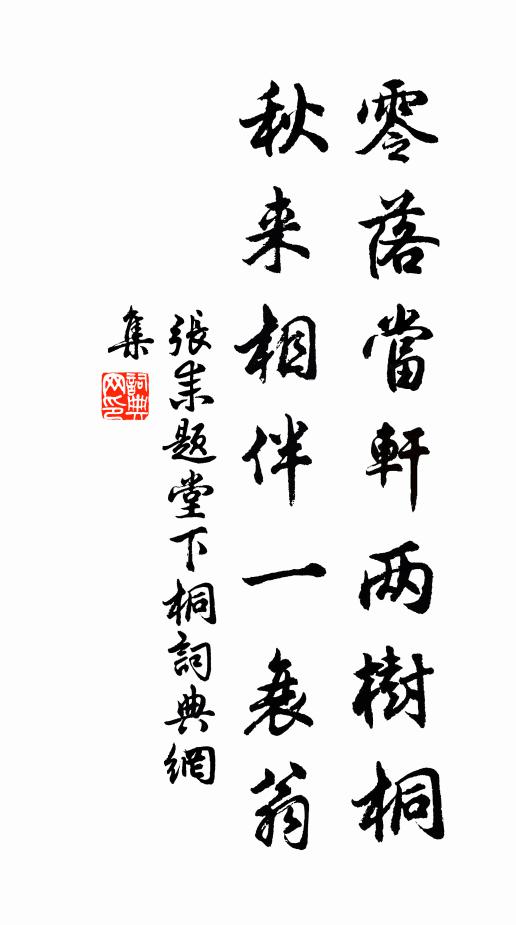 零落當軒两樹桐
秋来相伴一衰翁
張耒题堂下桐詞典網
集
詞典
网印